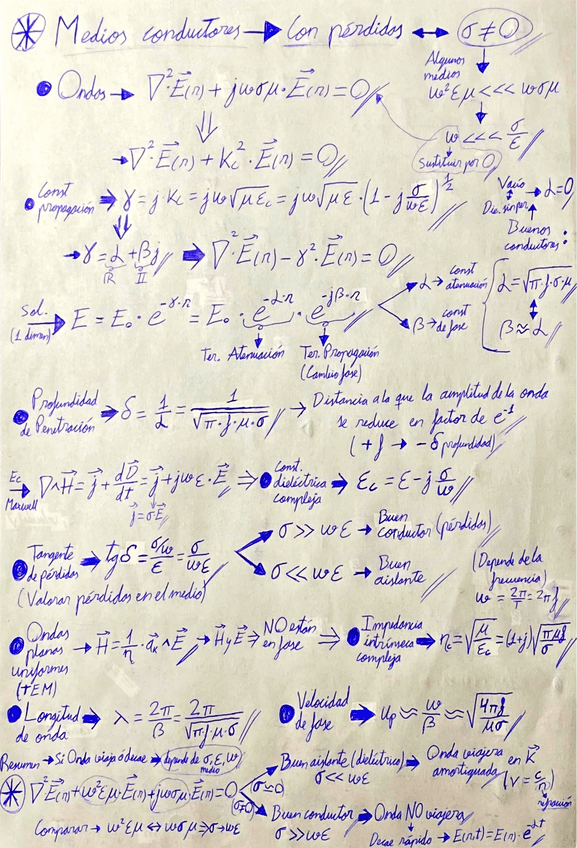 Medios conductores → Con pérdidas ↔ σ ≠ 0
Algunos medios
Ondas → ∇²·E⃗(r) + jωσμ·E⃗(r) = 0
ω²εμ <<< ωσμ
ω <<< σ/ε
sustituir por 0
→ ∇²·E⃗(r) + Kc²·E⃗(r) = 0
Const propagación → γ = j·Kc = jω√μεc = jω√με·(1 - j σ/ωε)^1/2
Vacío → α = 0
Die. sin per.
Buenos conductores:
→ γ = α + βj ⇒ ∇²·E⃗(r) - γ²·E⃗(r) = 0
ℝ 𝕀
Sol. (1 dimen) → E = E₀·e^-γ·r = E₀·e^-α·r·e^-jβ·r
α → const atenuación
β → const de fase
α = √π·f·σ·μ
β ≈ α
Ter. Atenuación
Ter. Propagación (Cambio fase)
Profundidad de Penetración → δ = 1/α = 1/√π·f·μ·σ → Distancia a la que la amplitud de la onda
se reduce en factor de e⁻¹
(+f → -δ profundidad)
Ec Maxwell → ∇∧H⃗ = j⃗ + dD⃗/dt = j⃗ + jωε·E⃗ ⇒ const. dieléctrica compleja → εc = ε - j σ/ω
j⃗ = σE⃗
Tangente de pérdidas → tgδ = (σ/ω)/ε = σ/ωε
(Valorar pérdidas en el medio)
σ >> ωε → Buen conductor (pérdidas)
σ << ωε → Buen aislante
(Depende de la frecuencia)
ω = 2π/T = 2πf
Ondas planas uniformes (TEM) → H⃗ = 1/η·a⃗k∧E⃗ → H⃗ y E⃗ ⇒ NO están en fase ⇒ Impedancia intrínseca compleja → ηc = √μ/εc = (1+j)√πμf/σ
Longitud de onda → λ = 2π/β = 2π/√πf·μ·σ
Velocidad de fase → up ≈ ω/β ≈ √4πf/μσ
Resumen → Si Onda viaja ó decae → depende de σ, ε, ω
medio
∇²·E⃗(r) + ω²εμ·E⃗(r) + jωσμ·E⃗(r) = 0
σ ≈ 0
σ ≠ 0
Buen aislante (dieléctrica) → Onda viajera en K⃗
σ << ωε
amortiguada (v = c/n)
refracción
Buen conductor → Onda NO viajera
σ >> ωε
Decae rápido → E(r,t) = E(r)·e^-αt
Comparar → ω²εμ ↔ ωσμ ⇒ σ → ωε